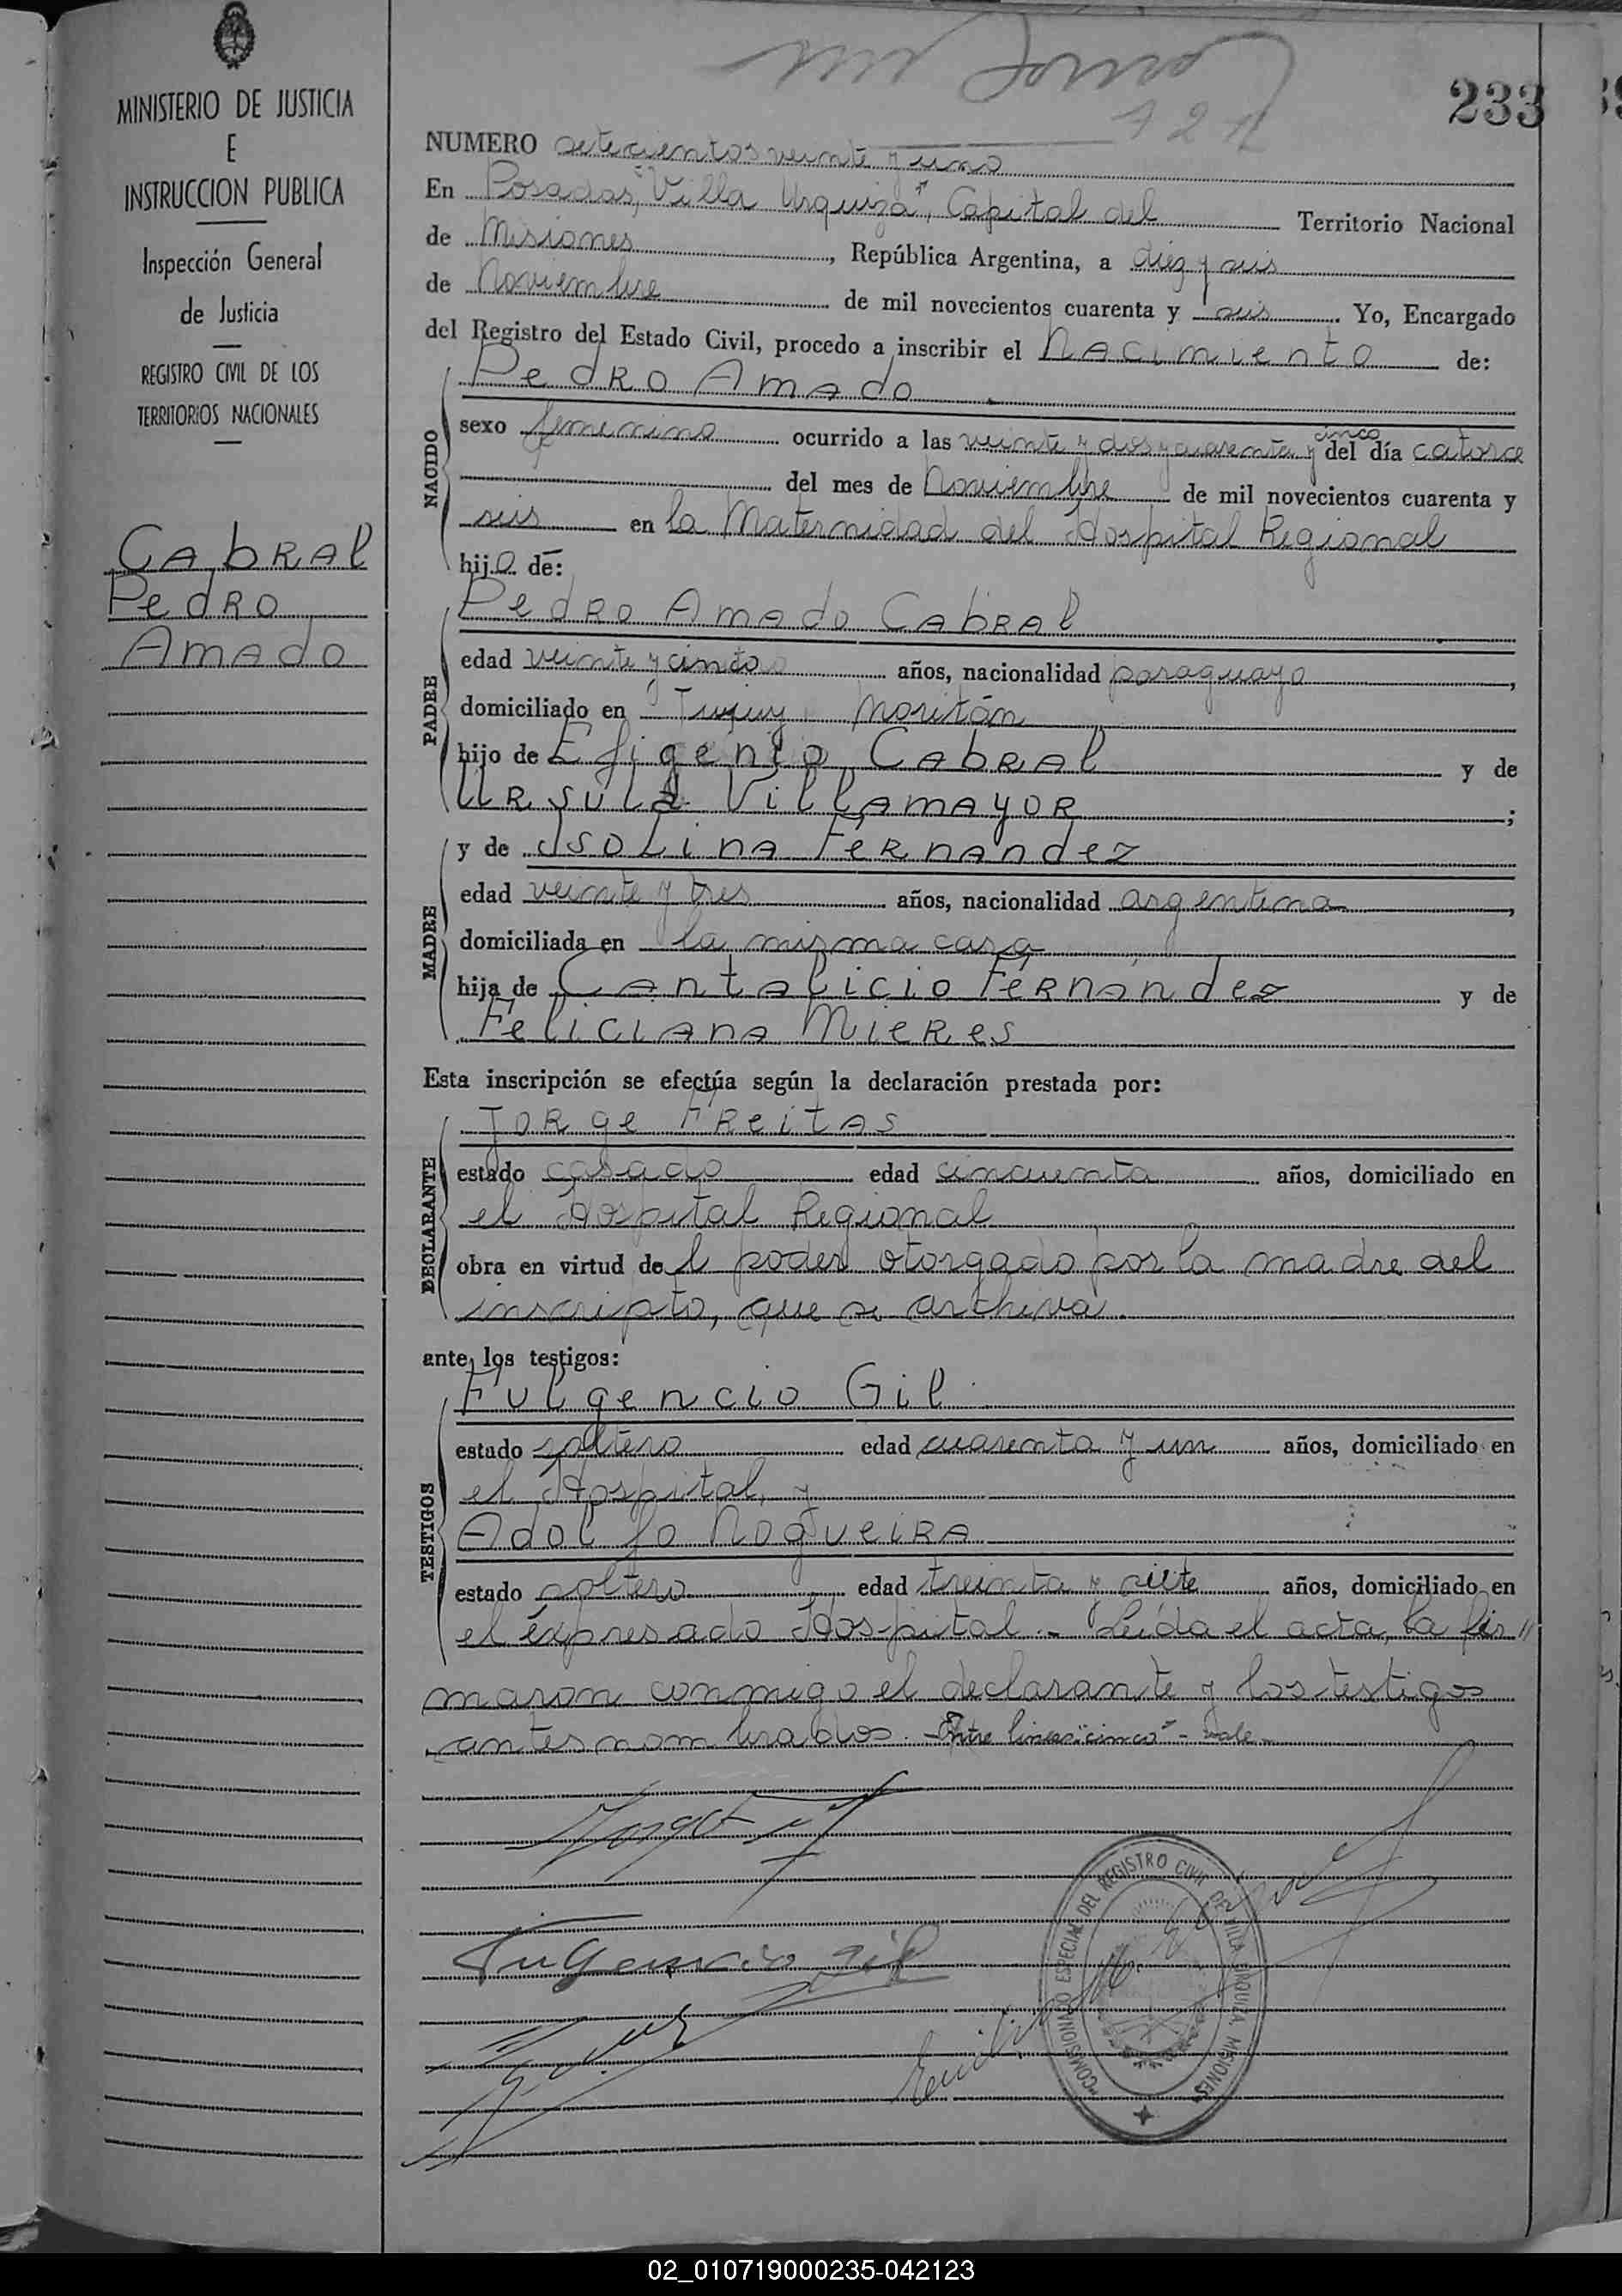 MINISTERIO DE JUSTICIA
E
INSTRUCCION PUBLICA
Inspección General
de Justicia
REGISTRO CIVIL DE LOS
TERRITORIOS NACIONALES
CABRAL
Pedro
Amado
233
721
NUMERO setecientos veinte y uno
En Posadas, "Villa Urquiza", Capital del Territorio Nacional
de Misiones, República Argentina, a diez y seis
de Noviembre de mil novecientos cuarenta y seis. Yo, Encargado
del Registro del Estado Civil, procedo a inscribir el Nacimiento de:
NACIDO
Pedro Amado
cinco
sexo femenino ocurrido a las veinte y dos y cuarenta y del día catorce
del mes de Noviembre de mil novecientos cuarenta y
seis en la Maternidad del Hospital Regional
hijo de:
PADRE
Pedro Amado Cabral
edad veinte y cinco años, nacionalidad paraguaya,
domiciliado en Jujuy Moritán
hijo de Efigenio Cabral y de
Ursula Villamayor;
MADRE
y de Isolina Fernandez
edad veinte y tres años, nacionalidad argentina,
domiciliada en la misma casa
hija de Cantalicio Fernández y de
Feliciana Mieres
Esta inscripción se efectúa según la declaración prestada por:
DECLARANTE
Jorge Freitas
estado casado edad cincuenta años, domiciliado en
el Hospital Regional
obra en virtud del poder otorgado por la madre del
inscripto, que se archiva.
ante los testigos:
TESTIGOS
Fulgencio Gil
estado soltero edad cuarenta y un años, domiciliado en
el Hospital, y
Adolfo Nogueira
estado soltero edad treinta y siete años, domiciliado en
el expresado Hospital.- Leída el acta, la fir"
maron conmigo el declarante y los testigos
antes nombrados.- Entre lineas: "cinco" - vale.-
Fulgencio Gil
COMISIONADO ESPECIAL DEL REGISTRO CIVIL DE VILLA URQUIZA, MISIONES
02_010719000235-042123